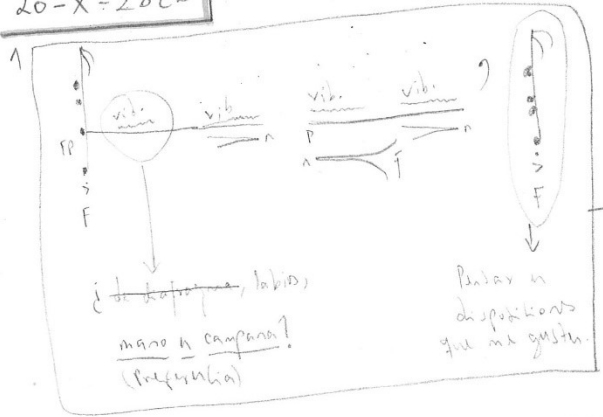 20-X-2012
vib. vib. vib. vib.
pp n p n
n f
F F
¿ de diafragma, labios,
mano en campana?
(Preferencia)
Pensar en
dispositivos
que me gusten.